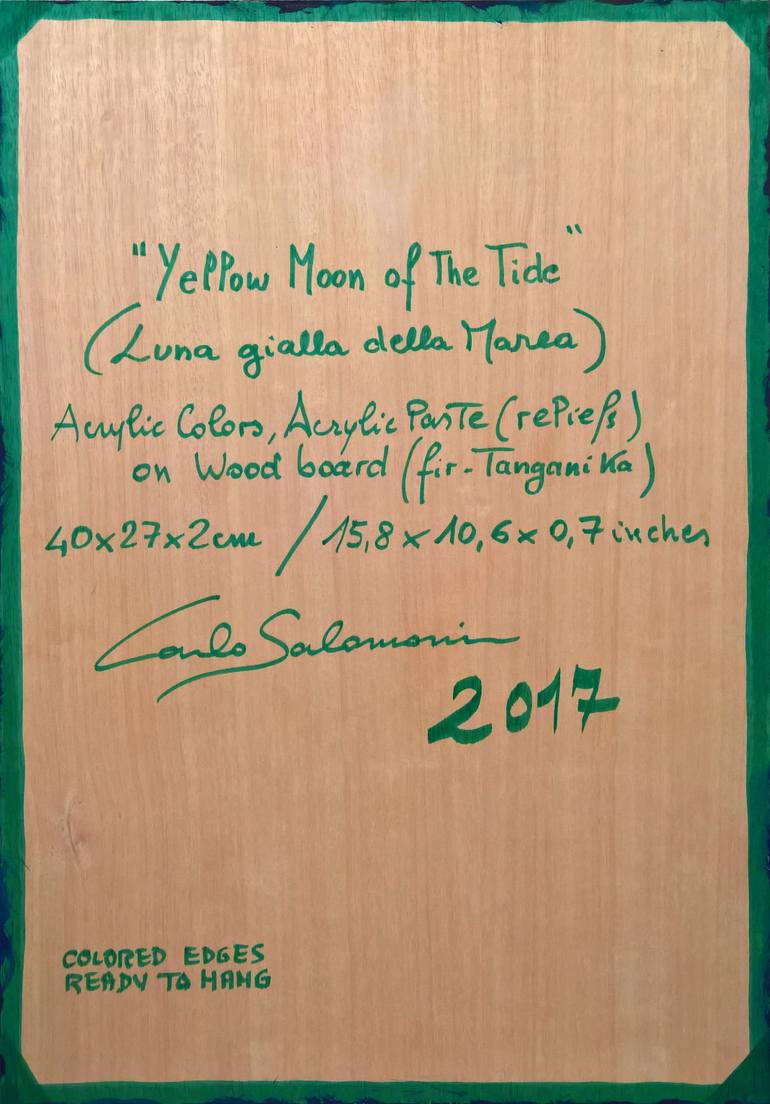 "Yellow Moon of The Tide"
(Luna gialla della Marea)
Acrylic Colors, Acrylic Paste (reliefs)
on Wood board (fir-Tanganika)
40x27x2cm / 15,8 x 10,6 x 0,7 inches
Carlo Salomoni
2017
COLORED EDGES
READY TO HANG